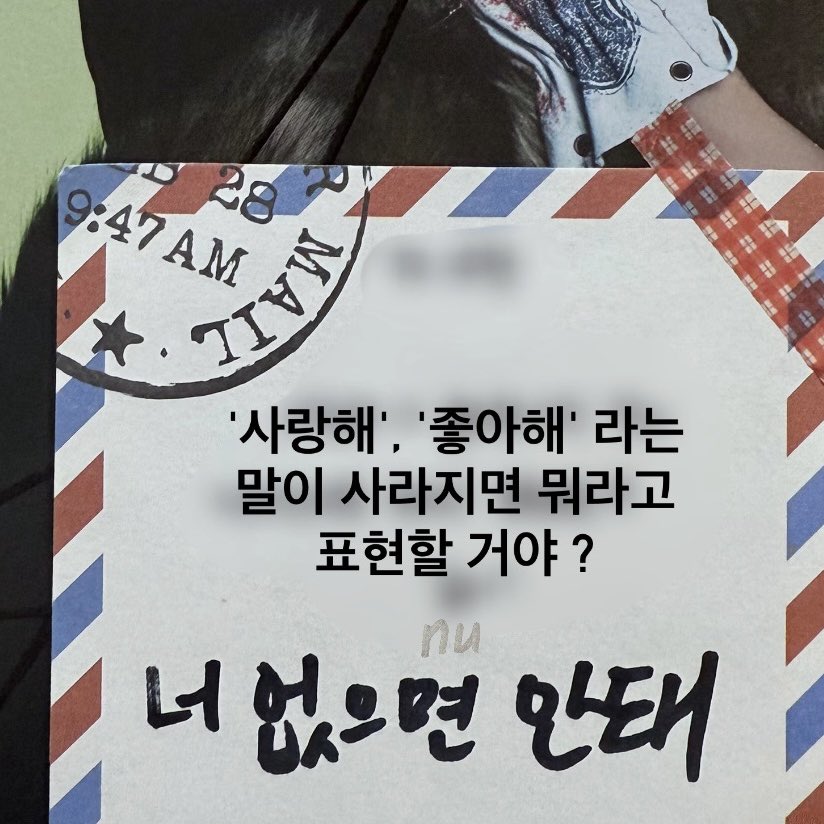 EB 28
9:47AM
R MAIL
'사랑해', '좋아해' 라는
말이 사라지면 뭐라고
표현할 거야 ?
nu
너 없으면 안태